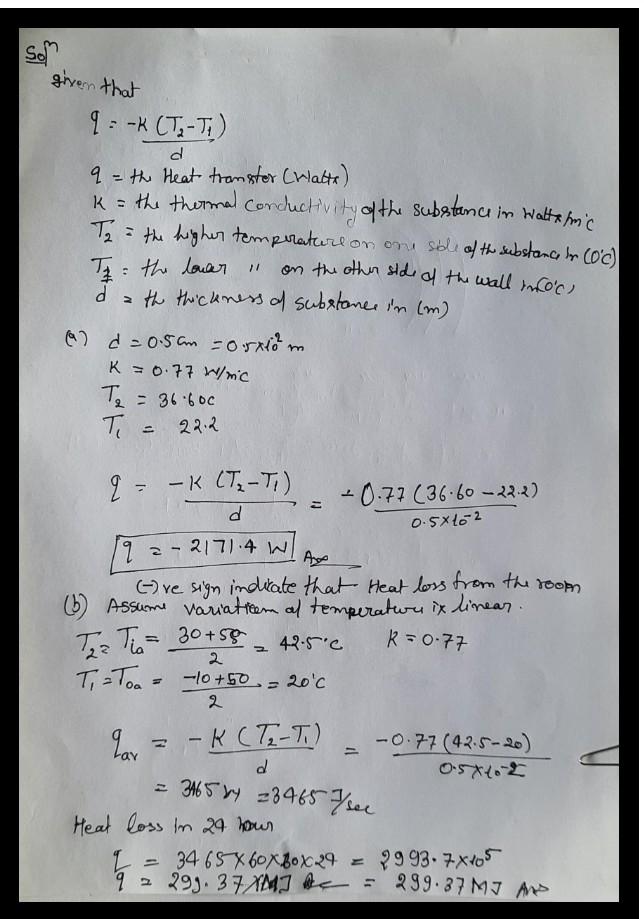 Solⁿ
given that
q = -K (T₂-T₁) / d
q = the Heat transfer (Watts)
K = the thermal conductivity of the substance in Watts/m°c
T₂ = the higher temperature on one side of the substance in (0°c)
T₁ = the lower " on the other side of the wall in (0°c)
d = the thickness of substance in (m)
(a) d = 0.5 cm = 0.5×10⁻² m
K = 0.77 W/m°c
T₂ = 36.60c
T₁ = 22.2
q = -K (T₂-T₁) / d = -0.77 (36.60 - 22.2) / 0.5×10⁻²
q = - 2171.4 W Ans
(-)ve sign indicate that Heat loss from the room
(b) Assume variation of temperature is linear.
T₂ = Tia = 30+55 / 2 = 42.5°c K = 0.77
T₁ = Toa = -10+50 / 2 = 20°c
qav = -K (T₂-T₁) / d = -0.77 (42.5-20) / 0.5×10⁻²
= 3465 W = 3465 J/sec
Heat loss in 24 hour
q = 3465×60×60×24 = 2993.7×10⁵
q = 299.37 MJ = 299.37 MJ Ans